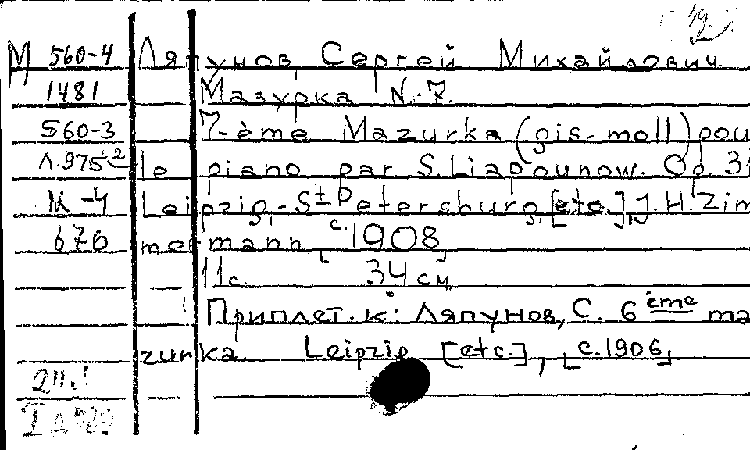 М 560-4 Ляпунов Сергей Михайлович
1481 Мазурка N. 7.
560-3 7-ème Mazurka (gis-moll) pou
Л.975 2 le piano par S. Liapounow. Op. 31
-4 Leipzig, St Petersburg [etc.], J. H. Zim
676 mermann [c. 1908]
11 с. 34 см
Приплет. к: Ляпунов, С. 6 ème ma
zurka. Leipzig [etc.], [c. 1906]